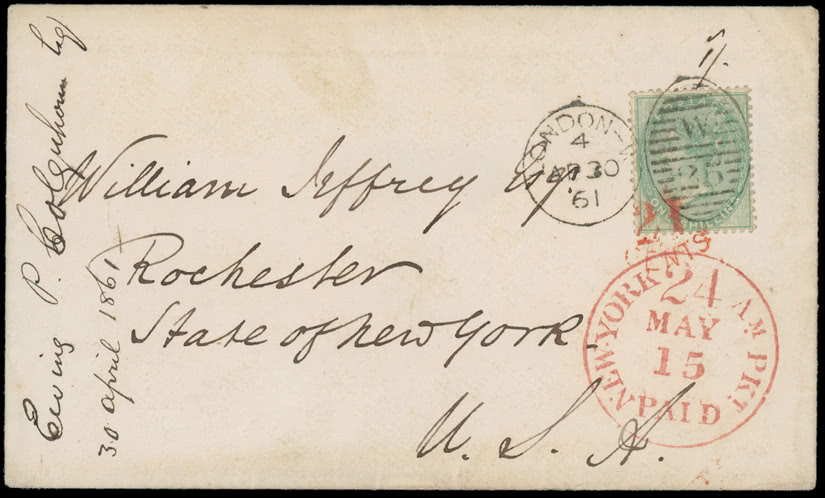 William Jeffrey Esq.
Rochester
State of New York
U. S. A.
Ewing P. Colquhoun Esq
30 april 1861
1/.
LONDON-W
4
AP 30
61
21
CENTS
NEW-YORK AM PKT.
24
MAY
15
PAID